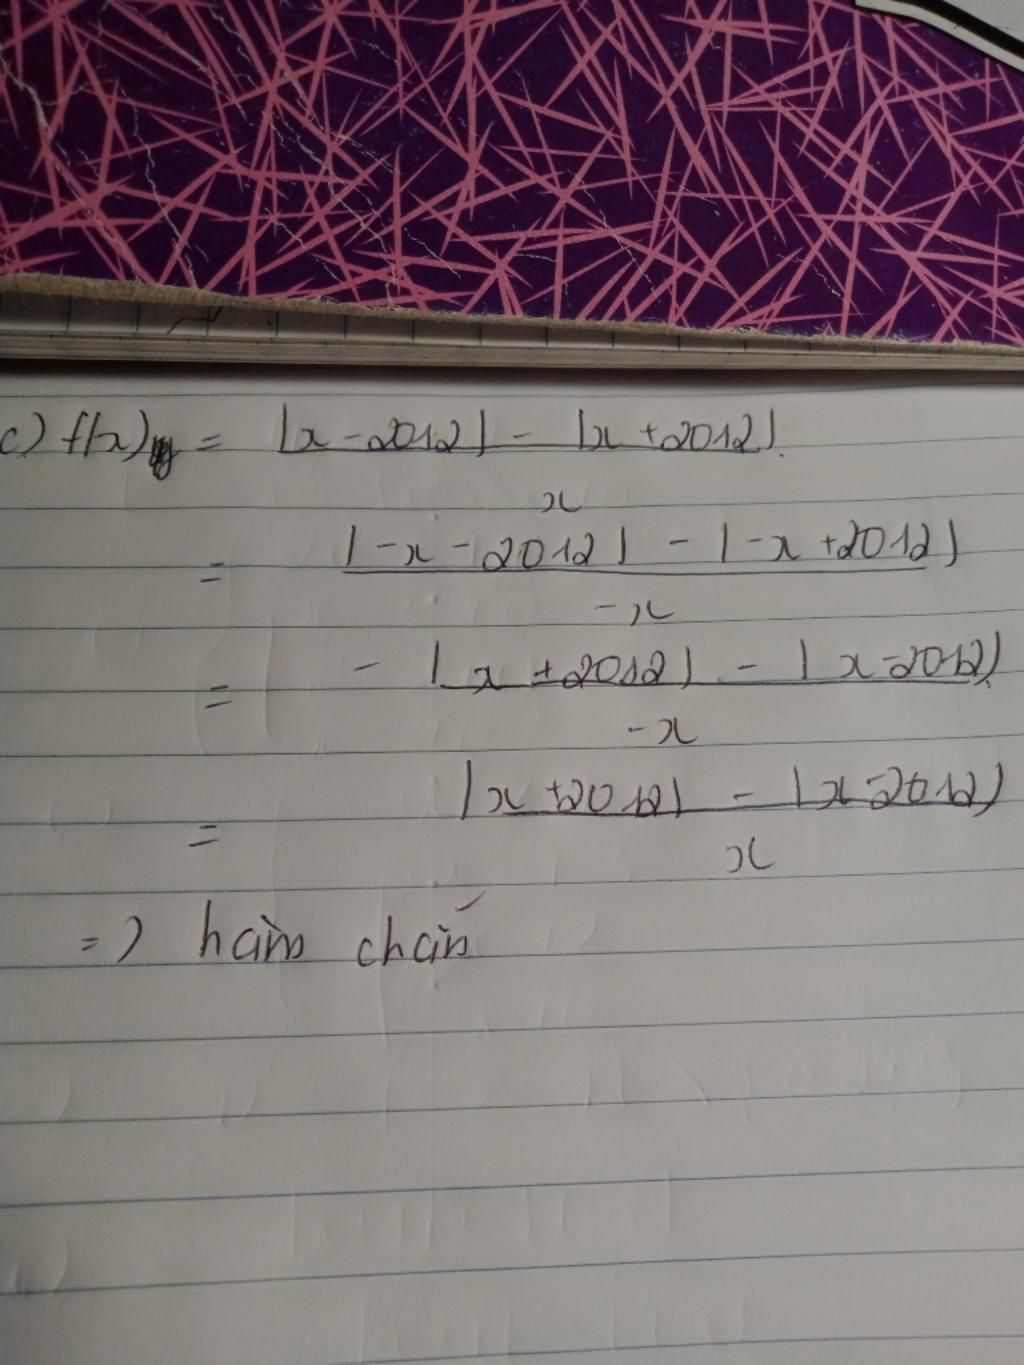 c) f(x) = |x - 2012| - |x + 2012|
x
= |-x - 2012| - |-x + 2012|
-x
= - |x + 2012| - |x - 2012|
-x
= |x + 2012| - |x - 2012|
x
=) hàm chẵn